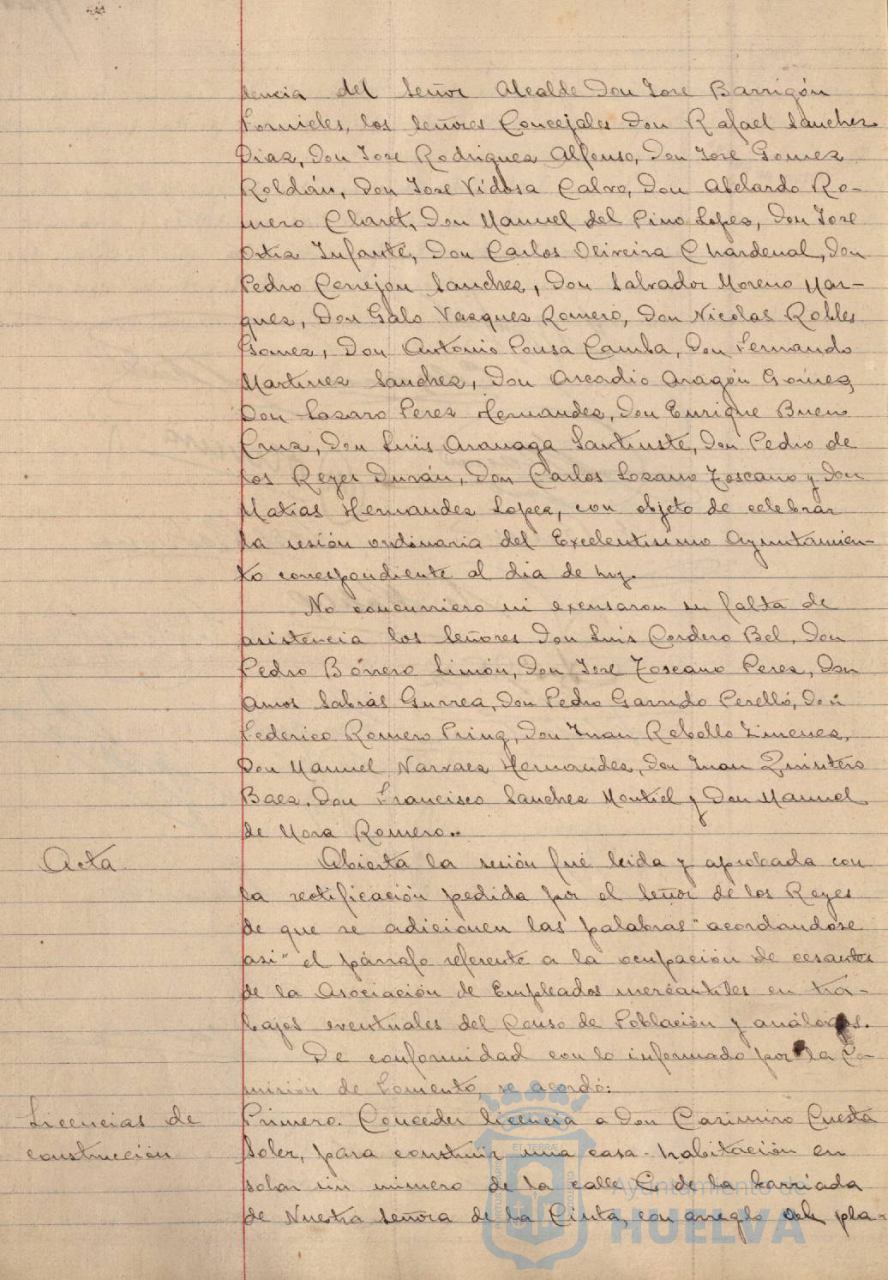 dencia del Señor Alcalde Don Jose Barrigón
Fornieles, los Señores Concejales Don Rafael Sanchez
Diaz, Don Jose Rodriguez Alfonso, Don José Gomez
Roldán, Don Jose Vidosa Calvo, Don Abelardo Ro-
mero Claret, Don Manuel del Pino Lopez, Don Jose
Ortiz Infante, Don Carlos Oliveira Chardenal, Don
Pedro Cerrejón Sanchez, Don Salvador Moreno Mar-
quez, Don Galo Vazquez Romero, Don Nicolas Robles
Gomez, Don Antonio Pousa Camba, Don Fernando
Martinez Sanchez, Don Arcadio Aragón Gómez,
Don Lazaro Perez Hernandez, Don Enrique Bueno
Cruz, Don Luis Aranaga Santiuste, Don Pedro de
los Reyes Durán, Don Carlos Lozano Toscano y Don
Matias Hernandez Lopez, con objeto de celebrar
la sesión ordinaria del Excelentisimo Ayuntamien-
to correspondiente al dia de hoy.
No concurriero ni excusaron su falta de
asistencia los Señores Don Luis Cordero Bel, Don
Pedro Borrero Limón, Don Jose Toscano Perez, Don
Amos Sabrás Gurrea, Don Pedro Garrido Perelló, Don
Federico Romero Prinz, Don Juan Rebollo Jimenez,
Don Manuel Narvaez Hernandez, Don Juan Quintero
Baez, Don Francisco Sanchez Montiel y Don Manuel
de Mora Romero..
Acta
Abierta la sesión fué leida y aprobada con
la rectificación pedida por el Señor de los Reyes
de que se adicionen las palabras "acordandose
asi" el párrafo referente a la ocupación de cesantes
de la Asociación de Empleados mercantiles en tra-
bajos eventuales del Censo de Población y análogos.
De conformidad con lo informado por la Co-
misión de Fomento, se acordó:
Licencias de
construcción
Primero. Conceder licencia a Don Casimiro Cuesta
Soler, para construir una casa-habitación en
solar sin número de la calle C de la barriada
de Nuestra Señora de la Cinta, con arreglo al pla-
Ayuntamiento de
HUELVA